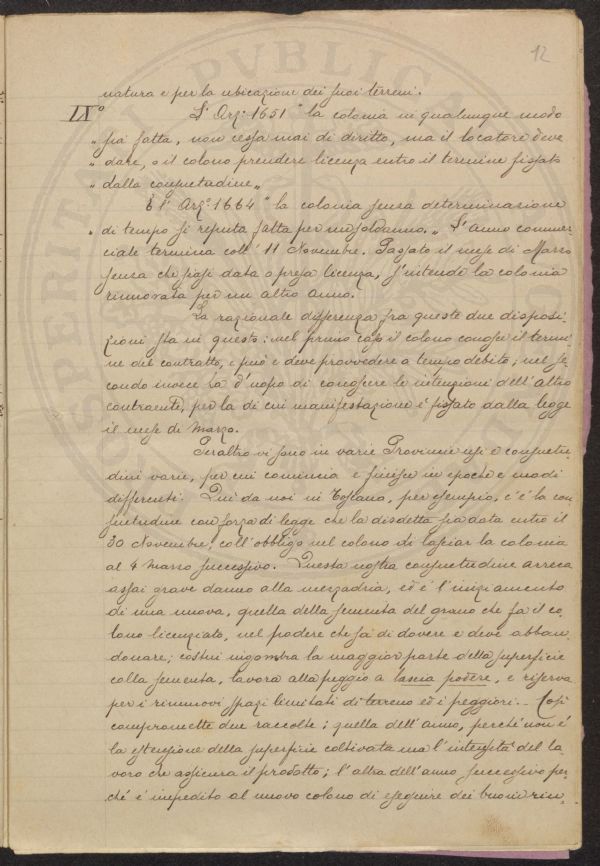 12
natura e per la ubicazione dei suoi terreni.
IX° L'Arg.° 1651 " la colonia in qualunque modo
" sia fatta, non cessa mai di diritto, ma il locatore deve
" dare, o il colono prendere licenza entro il termine fissato
" dalla consuetudine "
E l'Arg.° 1664 " la colonia senza determinazione
" di tempo si reputa fatta per un sol anno. " L'anno commer-
ciale termina coll' 11 Novembre. Passato il mese di Marzo
senza che siasi data o presa licenza, s'intende la colonia
rinnovata per un altro anno.
La razionale differenza fra queste due disposi-
zioni sta in questo: nel primo caso il colono conosce il termi-
ne del contratto, e può e deve provvedere a tempo debito; nel se-
condo invece fa d'uopo di conoscere le intenzioni dell'altro
contraente, per la di cui manifestazione è fissato dalla legge
il mese di Marzo.
Peraltro vi sono in varie Provincie usi e consuetu-
dini varie, per cui comincia e finisce in epoche e modi
differenti. Qui da noi in Toscana, per esempio, c'è la con
suetudine con forza di legge che la disdetta sia data entro il
30 Novembre, coll'obbligo nel colono di lasciar la colonia
al 4 Marzo successivo. Questa nostra consuetudine arreca
assai grave danno alla mezzadria, ed è l'iniziamento
di una nuova, quella della sementa del grano che fa il co-
lono licenziato, nel podere che sa di dovere e deve abban
donare; costui ingombra la maggior parte della superficie
colla sementa, lavora alla peggio a lascia podere, e riserva
per i rinnuovi spazi limitati di terreno ed i peggiori. - Così
compromette due raccolte; quella dell'anno, perché non è
la estensione della superficie coltivata ma l'intensità del la-
voro che assicura il prodotto; l'altra dell'anno successivo per-
ché è impedito al nuovo colono di eseguire dei buoni rin-